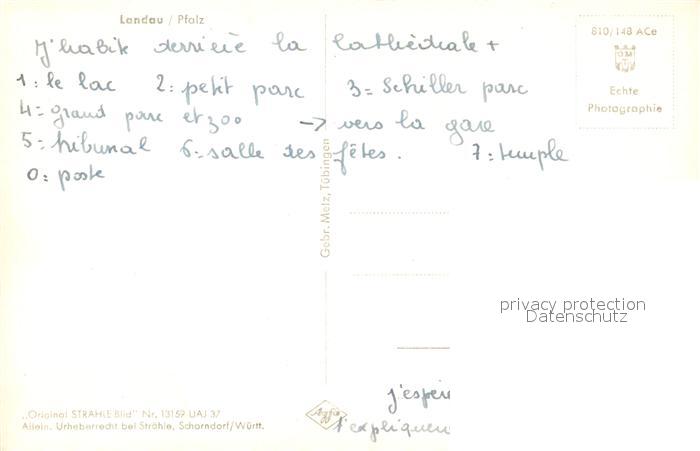 Landau / Pfalz
J'habite derrière la Cathédrale +
1: le lac 2: petit parc 3= Schiller parc
4= grand parc et zoo → vers la gare
5= tribunal 6= salle des fêtes. 7: temple
0: poste
810/148 ACe
Echte
Photographie
Gebr. Metz, Tübingen
privacy protection
Datenschutz
j'espèr
t'expliquen
„Original STRÄHLE Bild" Nr. 13159 UAJ 37
Allein. Urheberrecht bei Strähle, Schorndorf/Württ.
Agfa